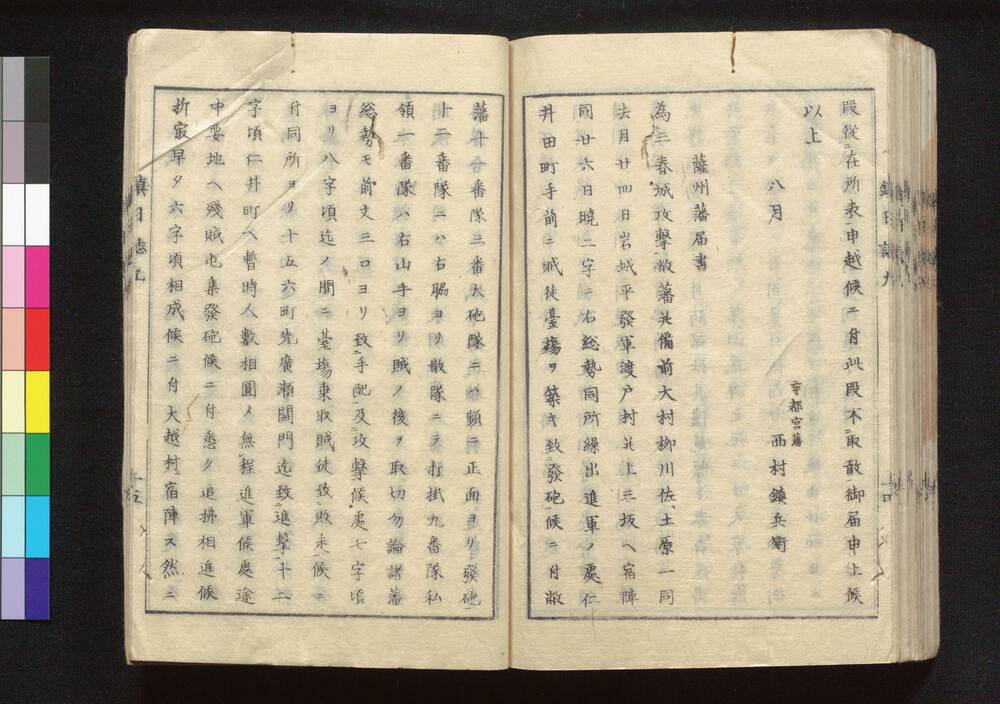 段従ニ在所表申越候ニ付此段不取敢御届申上候
以上
八月
宇都宮藩
西村鎮兵衛
薩州藩届書
為三春城攻撃敝藩并備前大村柳川佐土原一同
去月廿四日岩城平發軍渡戸村并上三坂ヘ宿陣
同廿六日暁二字ニ右総勢同所繰出進軍ノ處仁
井田町手前ニ賊徒臺塲ヲ築キ致發砲候ニ付敝
藩十番隊三番大砲隊ニハ頻ニ正面ヨリ發砲
十二番隊ニハ右脇ヨリ散隊ニテ打掛九番隊私
領一番隊ハ右山手ヨリ賊ノ後ヲ取切勿論諸藩
総勢モ前文三口ヨリ致手配及攻撃候處七字頃
ヨリ八字頃迄ノ間ニ臺塲乗取賊徒致敗走候ニ
付同所ヨリ十五六町先廣瀬關門迄致進撃十二
字頃仁井町ヘ暫時人數相圓メ無程進軍候處途
中要地ヘ殘賊屯集發砲候ニ付悉ク追拂相進候
折最早夕六字頃相成候ニ付大越村宿陣ス然ニ
鎮日誌九
十四
鎮日誌九
十五